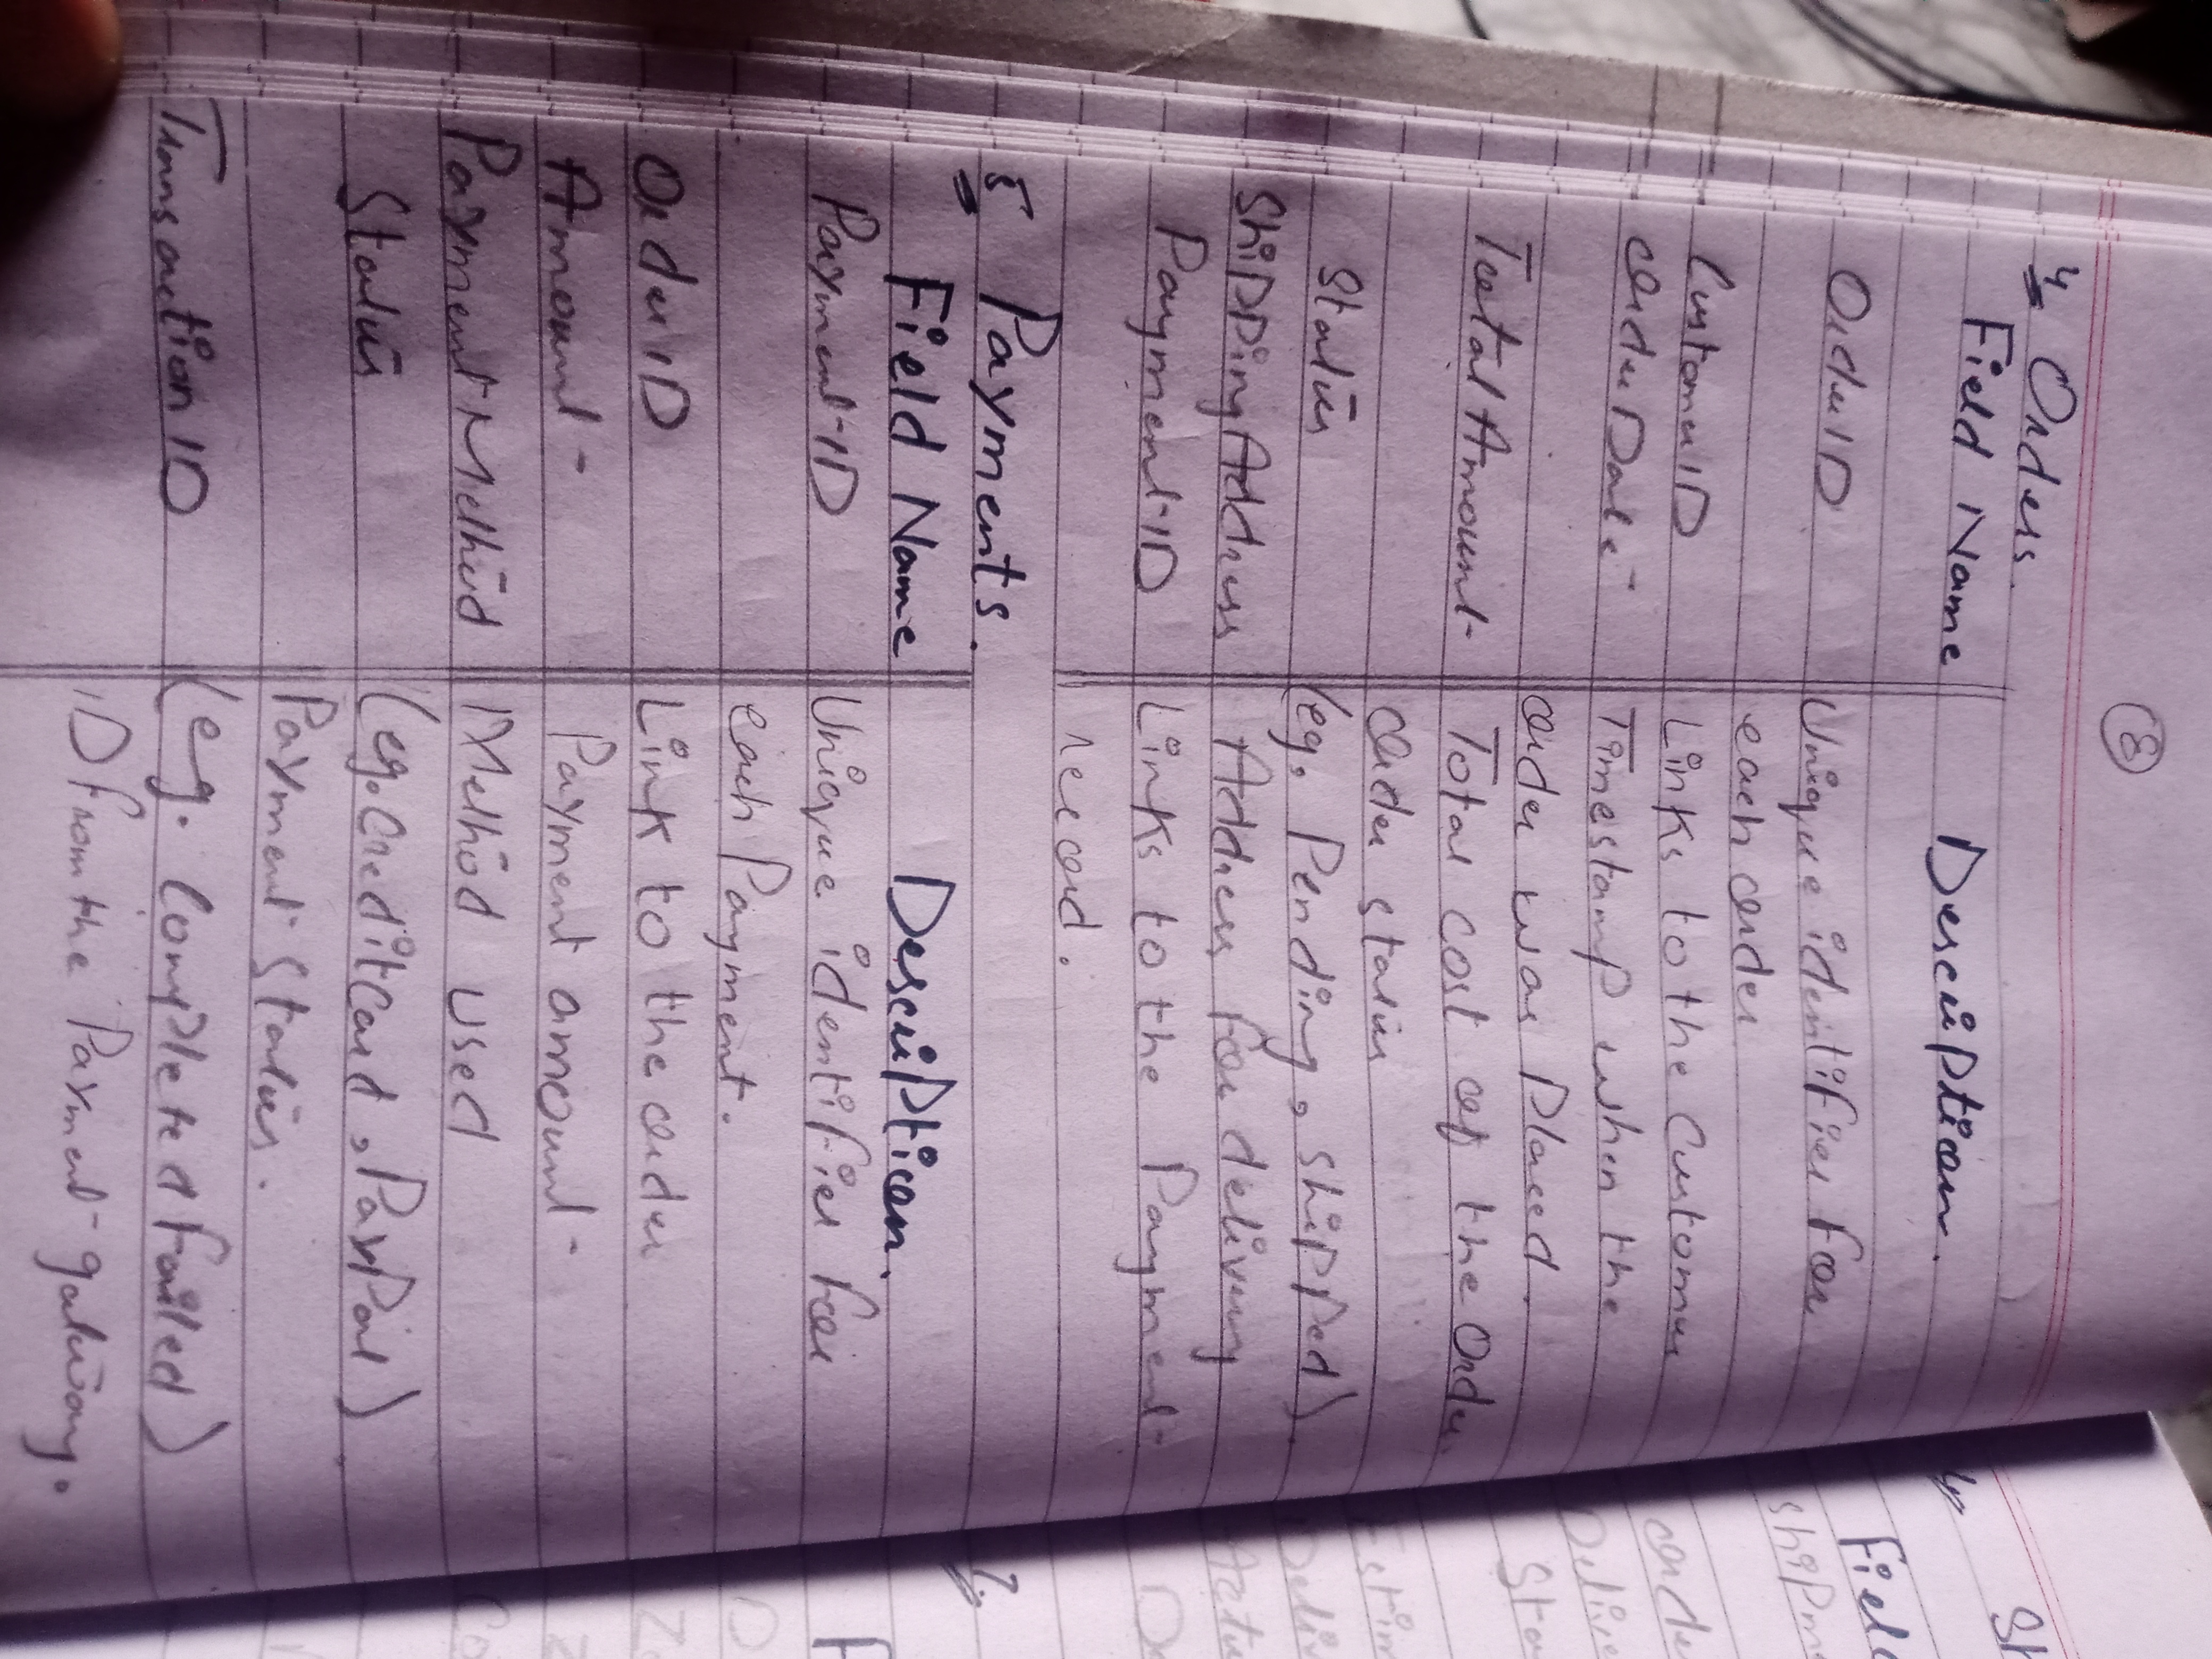 8
4 Orders.
Field Name Description.
OrderID Unique identifier for
each order
CustomerID Links to the customer
OrderDate Timestamp when the
order was placed.
TotalAmount Total cost of the Order
Order status
Status (eg, Pending, shipped).
ShippingAddress Address for delivery
PaymentID Links to the Payment
record.
5 Payments.
Field Name Description.
PaymentID Unique identifier for
each Payment.
OrderID Link to the order
Amount Payment amount
PaymentMethod Method used
Status (eg. Credit Card, PayPal).
Payment status.
TransactionID (eg. Completed failed)
ID from the Payment gateway.
Field
order